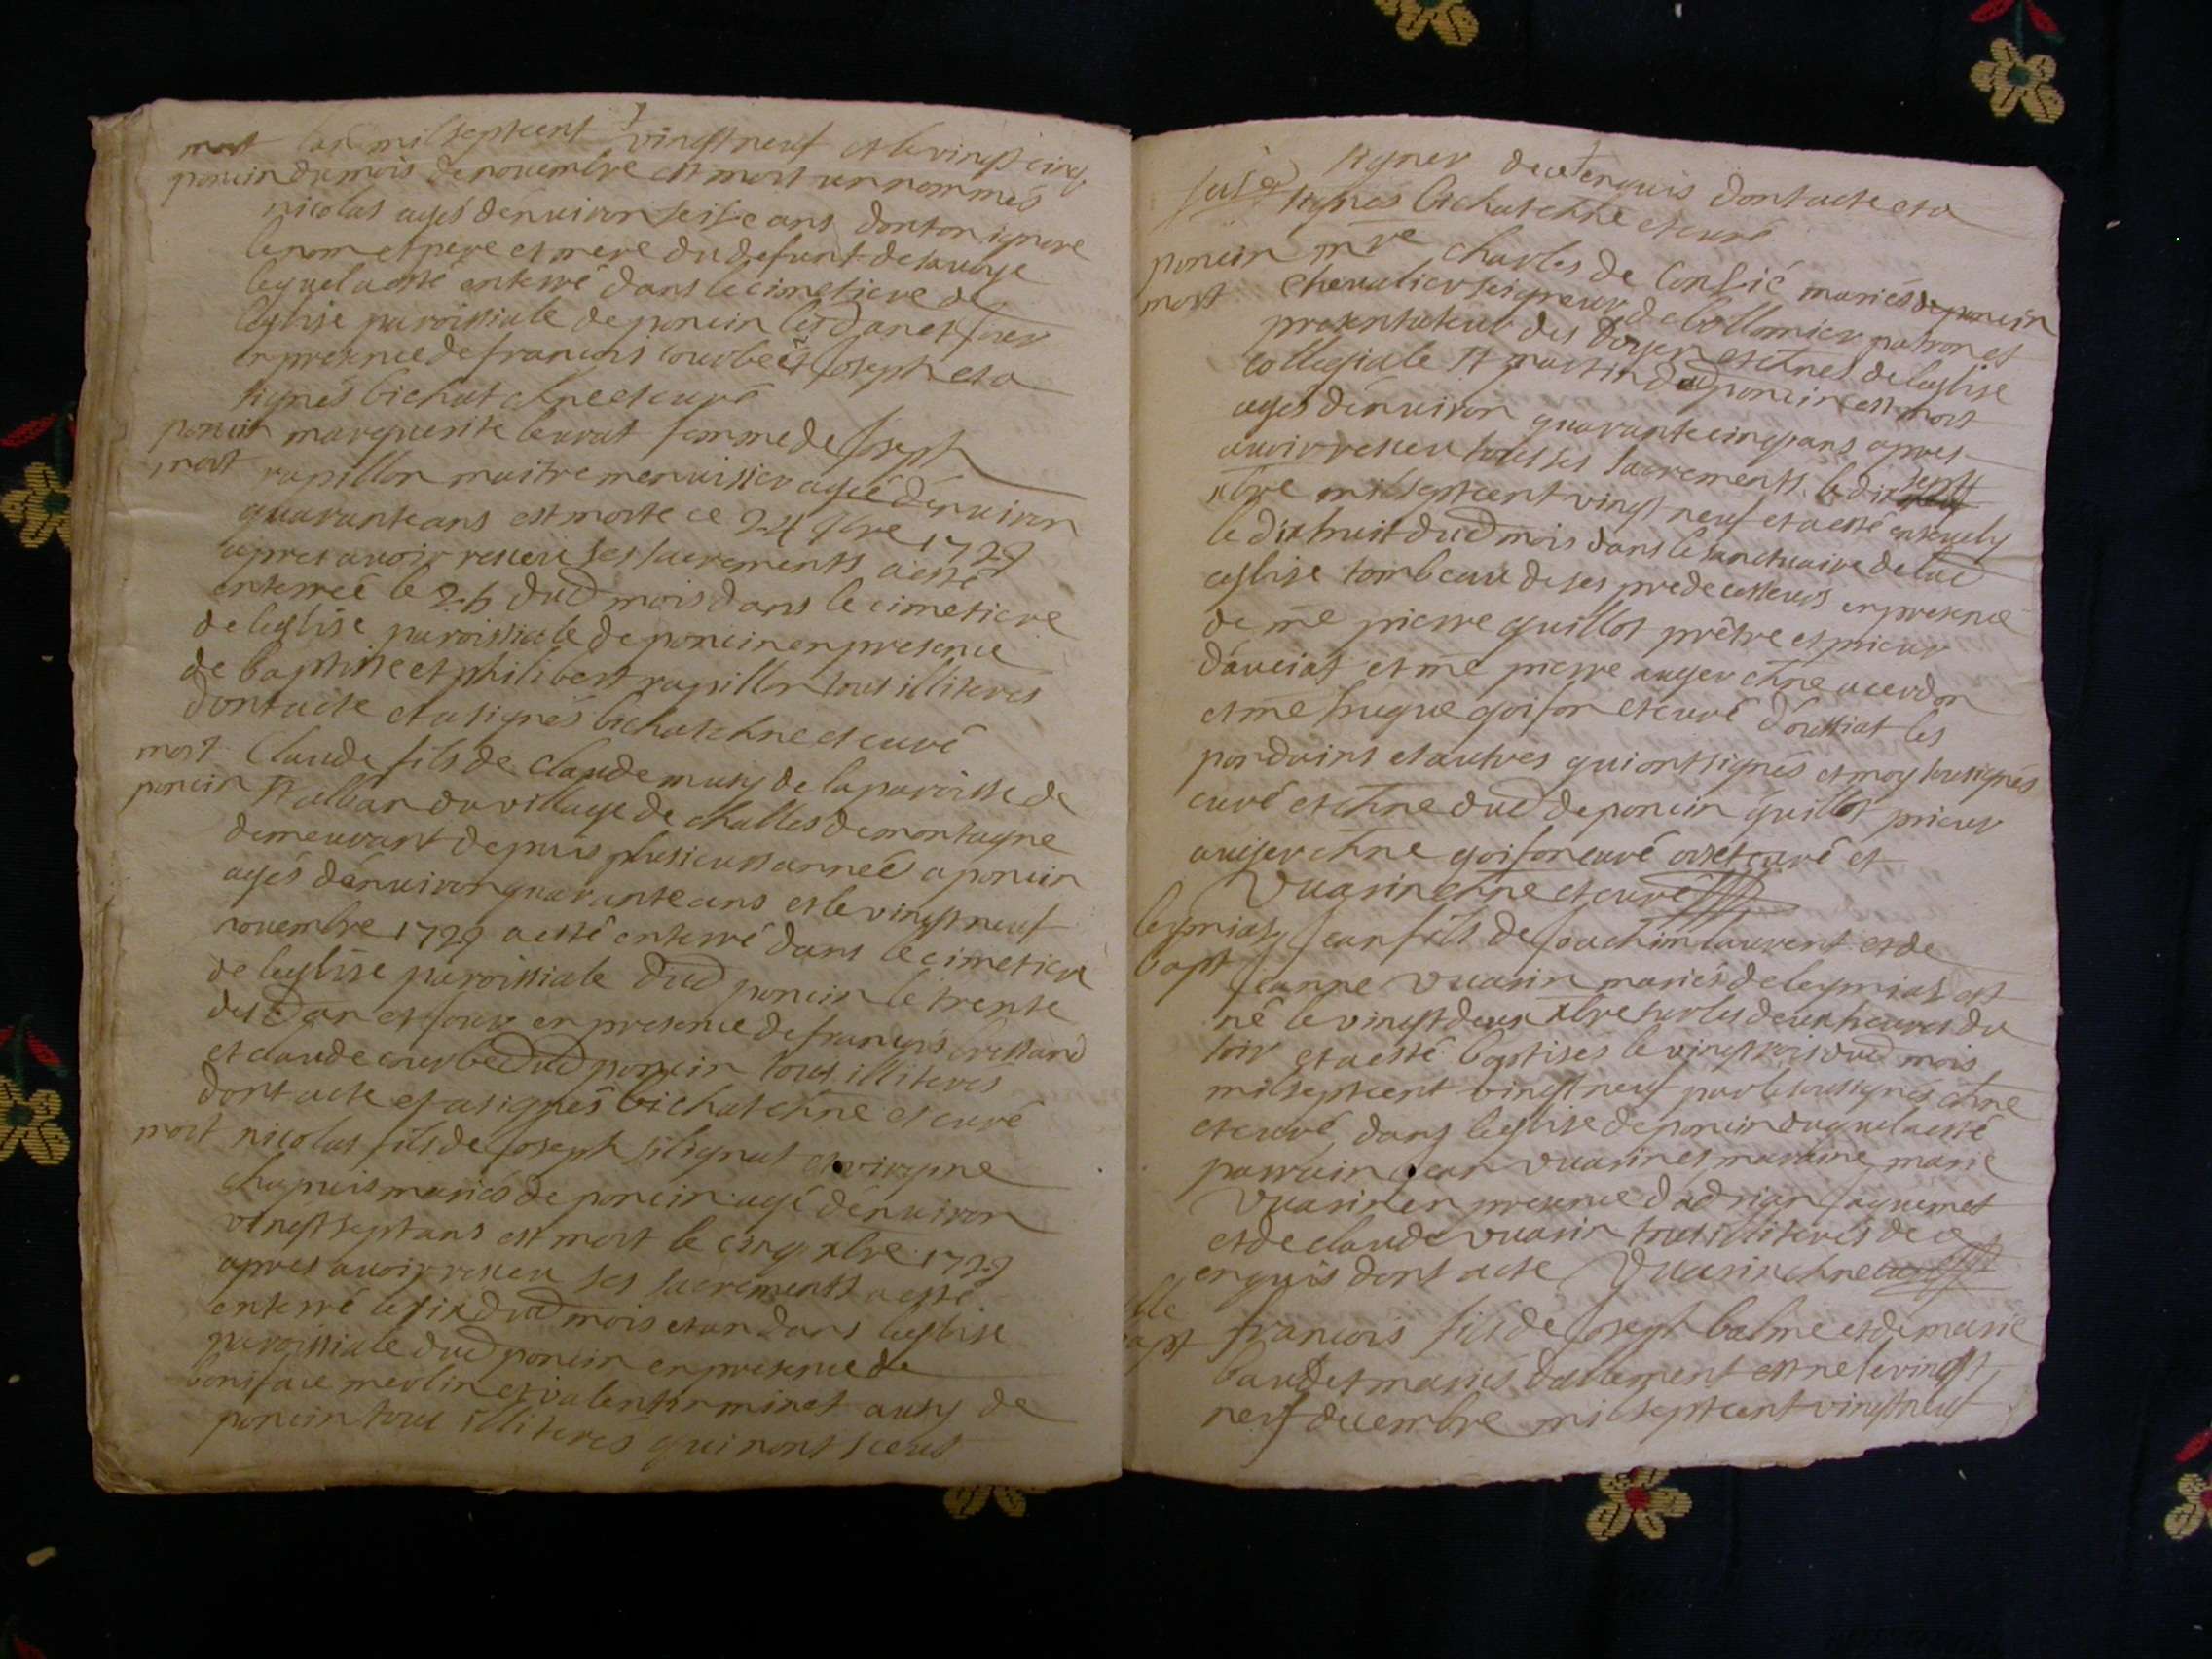 mort lan mil septcent vingtneuf et le vingt cinq
poncin du mois de novembre est mort un nommés
nicolas agés dénuiron seise ans dont on ignore
le nom et pere et mere du defunt de sauoye
lequel a esté enterré dans le cimetiere de
leglise paroissiale de poncin lesd an et jour
en presence de francois courbe et joseph et a
signés bichat chne et curé
poncin marguerite leurat femme de joseph
mort rapillon maitre menuissier agée dénuiron
quarante ans est morte ce 24 9bre 1729
apres auoir receu ses sacrements a esté
enterreé le 25 dud mois dans le cimetiere
de leglise paroissiale de poncin en presence
de baptiste et philibert rapillon tous illiterés
dont acte et a signés bichat chne et curé
mort Claude fils de claude musy de la paroisse de
poncin st alban du village de challes de montagne
demeurant depuis plusieurs anneés a poncin
agés dénuiron quarante ans et le vingt neuf
nouembre 1729 a esté enterré dans le cimetiere
de leglise paroissiale dud poncin le trente
desd an et jour en presence de francois
et claude courbe dud poncin tous illiterés
dont acte et a signés bichat chne et curé
mort nicolas fils de joseph silignat et
chapuis mariés de poncin agé dénuiron
vingt sept ans est mort le cinq xbre 1729
apres auoir receu ses sacrements a esté
enterré le six dud mois et an dans leglise
paroissiale dud poncin en presence de
boniface merlin et valentin minet ausy de
poncin tous illiterés qui nont sceut
signer de ce enquis dont acte et a
signés bichat chne et curé
poncin mre charles de Conzié mariés de poncin
mort cheualier seigneur de bollomier patron et
presentateur des doyen et chnes de leglise
collegiale st martin dud poncin est mort
agés dénuiron quarante cinq ans apres
auoir receu tous ses sacrements le dix sept
xbre mil septcent vingt neuf et a esté enseuely
le dixhuit dud mois dans le sanctuaire de lad
eglise tombeau de ses predecesseurs en presence
de mre pierre quillot prêtre et prieur
et mre pierre auger chne a cerdon
et mre hugue goifon et curé doussiat les
pardains et autres qui ont signés et moy sousignés
curé et chne dud de poncin quillot prieur
auger chne goifon curé curé et
Vuarin chne et curé
leymiat jean fils de joachim laurent et de
bapt jeanne vuarin mariés de leymiat est
né le vingt deux xbre sur les deux heures du
soir et a esté baptises le vingt trois dud mois
mil septcent vingt neuf par le soussignés chne
et curé dans leglise de poncin duquel a esté
parrain jean vuarin et maraine marie
vuarin en presence dadrian jaquemet
et de claude vuarin tous illiterés de ce
enquis dont acte Vuarin chne
bapt francois fils de joseph balme et de marie
baudet mariés dallement est ne le vingt
neuf decembre mil septcent vingt neuf